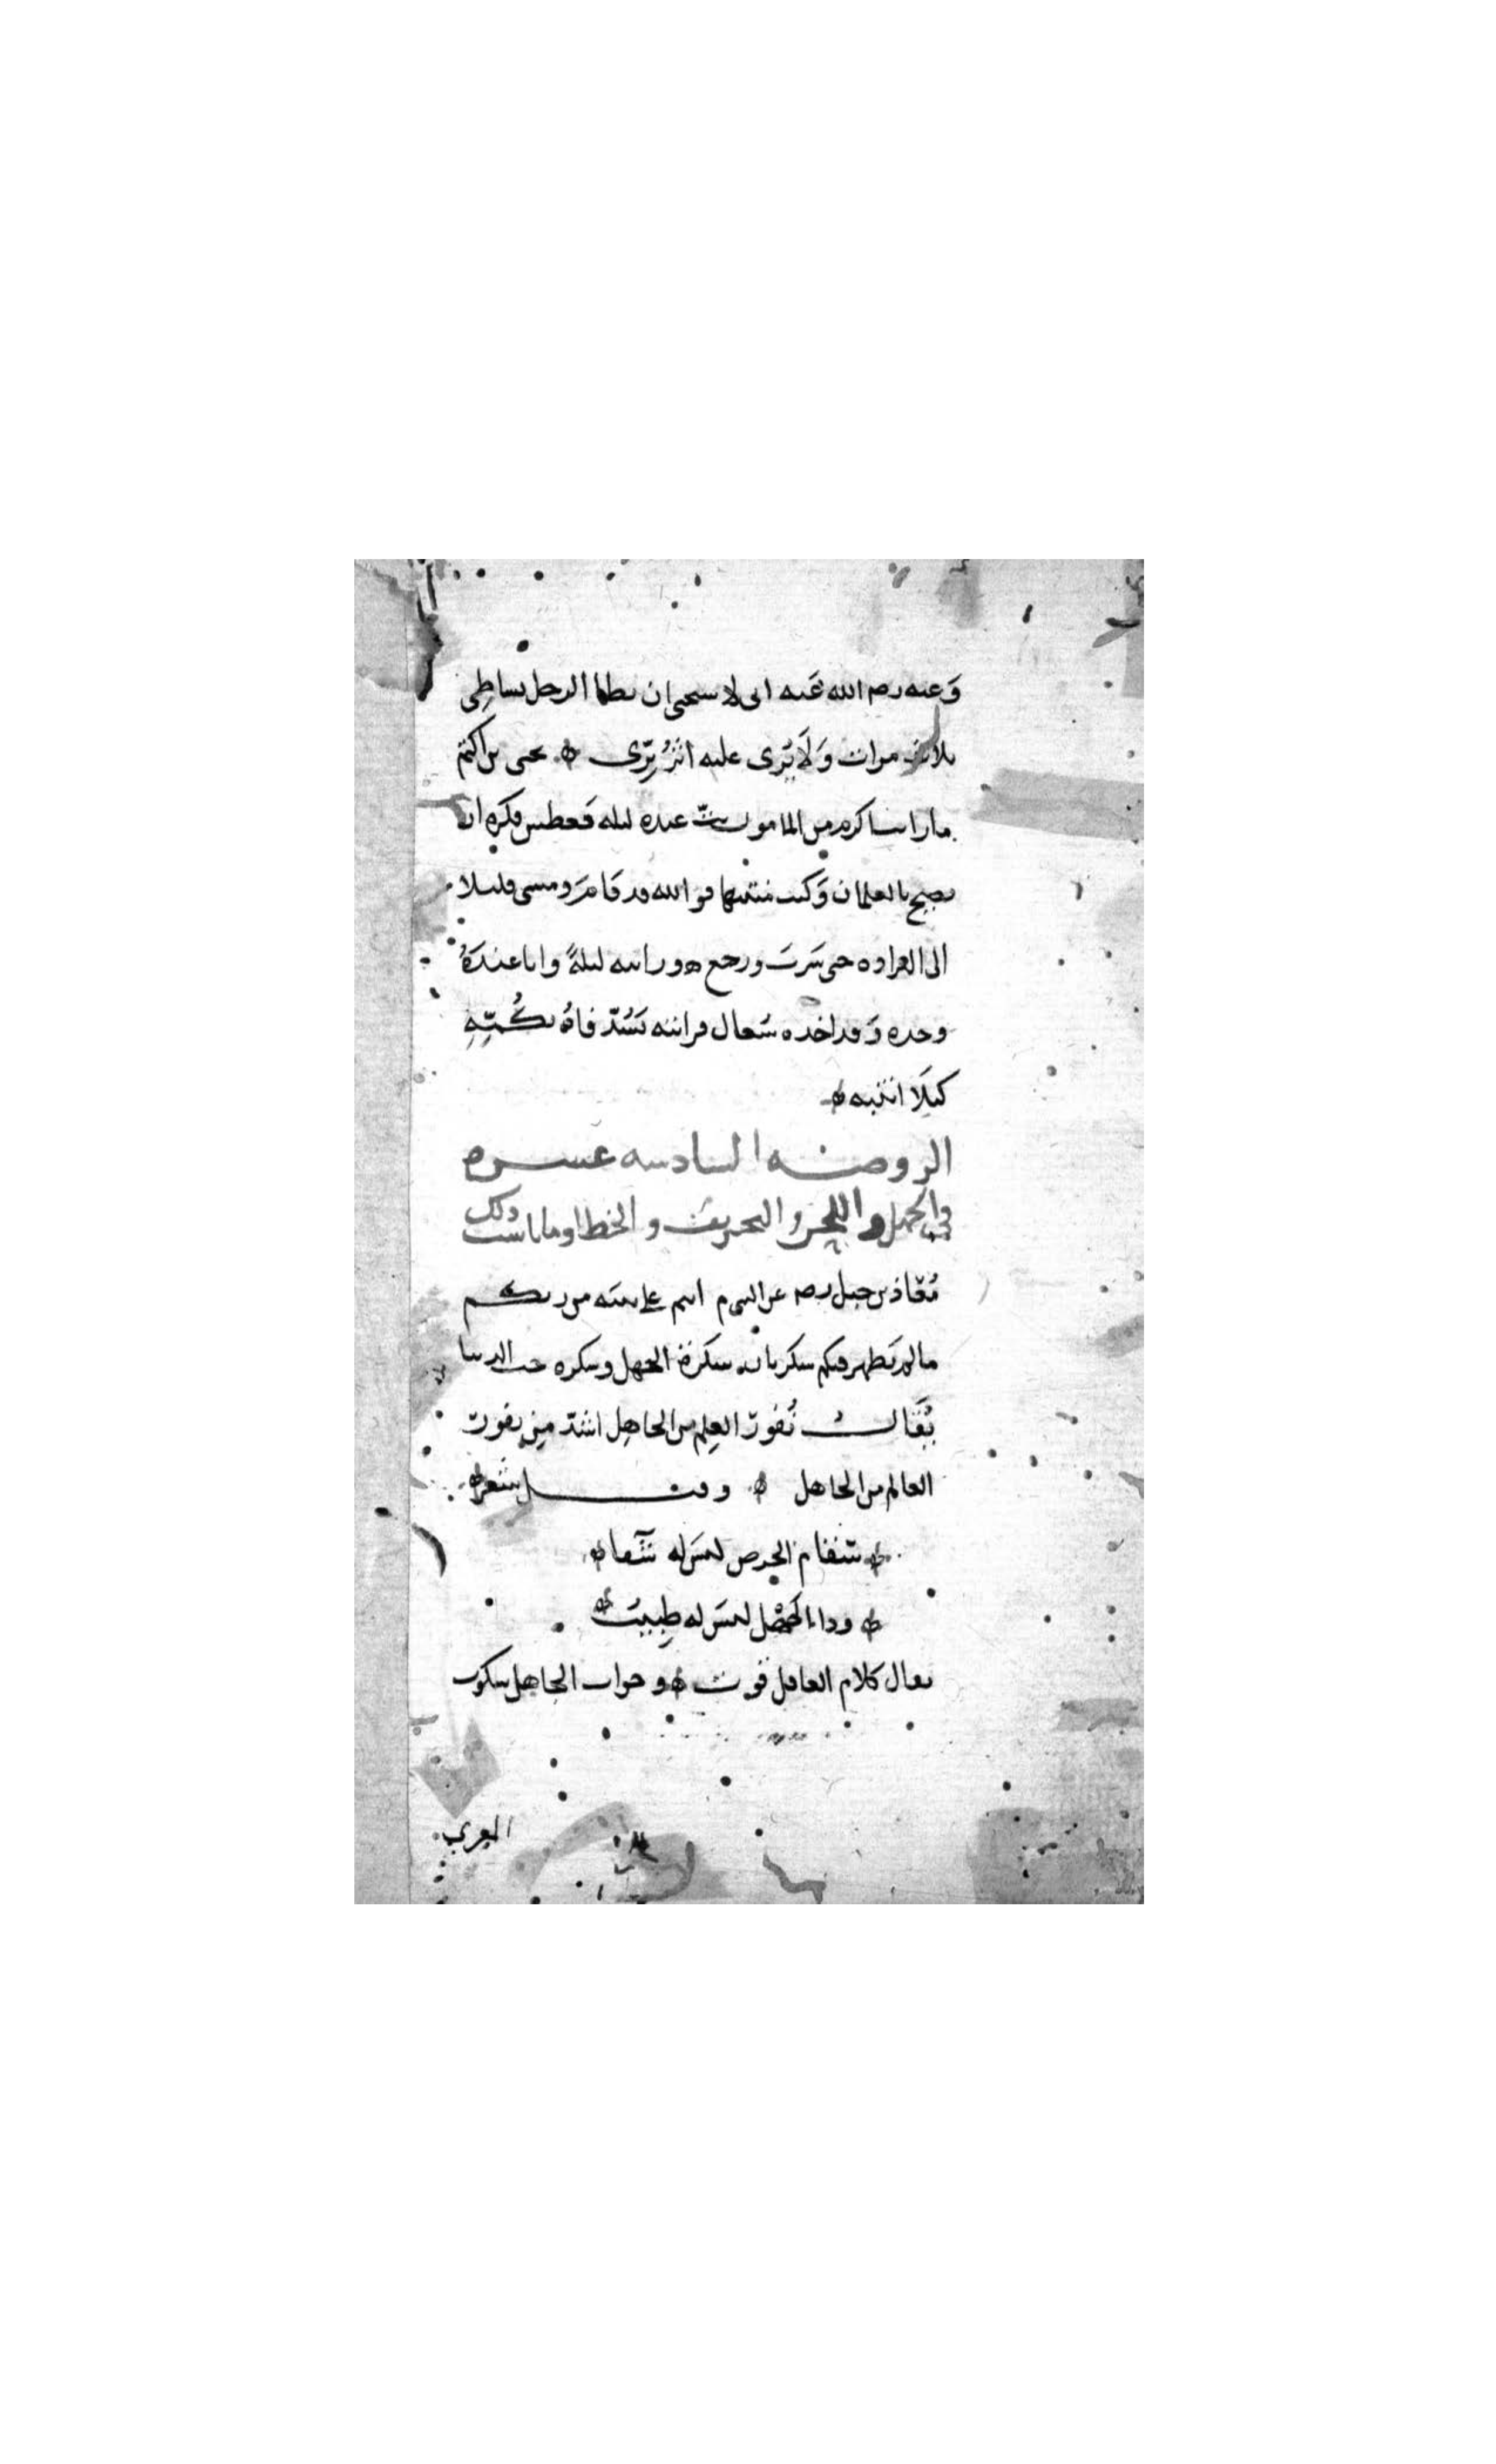 وَعنه رضه الله عَنه انى لا ستحيى ان يطأ الرجل بساطى
ثلاث مرات وَلَا يُرى عليه اثرُ برّى ۞ يحيى بن اكثم
ما رايت اكرم من المامون بتّ عنده ليلة فَعطس فكره ان
يصيح بالغلمان وَكنت منتبها فو الله قد قامَ ومشى قليلا
الى العراده حتى شربَ ورجع ۞ ورايته ليلةً وانا عندَهُ
وحده وَقد اخذه سُعال فرايته يَسُدّ فاهُ بكُمّهِ
كيلَا انتبه ۞
الروضه السادسه عشره
فى الجهل واللحن والتحريف والخطا وما ناسب ذلك
مُعَاذ بن جبل رضه عن النبى م انتم على بينه من ربكم
ما لم تَظهر فيكم سكرتان سكرة الجهل وسكره حب الدنيا
يُقَال نُفورُ العِلم من الجاهِل اشدّ مِن نفورِ
العالم من الجاهل ۞ وقيل شعر ۞
۞ سَقام الحرص ليسَ له شفآ ۞
۞ ودا الجَهْل ليسَ له طِبيبُ ۞
يقال كلام العاقل قوت ۞ وجواب الجاهل سكوت
العرب